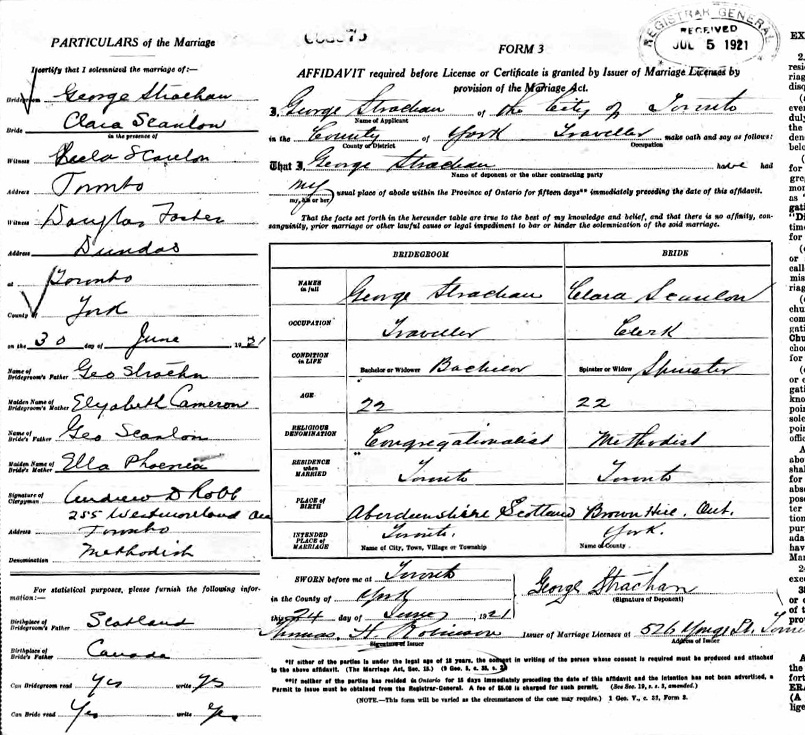 PARTICULARS of the Marriage
I certify that I solemnized the marriage of:—
Bridegroom George Strachan
Bride Clara Scanlon
in the presence of
Witness Scanlon
Address Toronto
Witness Douglas Foster
Address Dundas
at Toronto
County of York
on the 30 day of June 1921
Name of Bridegroom's Father Geo Strachn
Maiden Name of Bridegroom's Mother Elyzabeth Cameron
Name of Bride's Father Geo Scanlon
Maiden Name of Bride's Mother Ella Phoenix
Signature of Clergyman Andrew D Robb
255 Westmoreland Ave
Address Toronto
Denomination Methodist
For statistical purposes, please furnish the following information:—
Birthplace of Bridegroom's Father Scotland
Birthplace of Bride's Father Canada
Can Bridegroom read Yes write Yes
Can Bride read Yes write Yes
REGISTRAR GENERAL
RECEIVED
JUL 5 1921
FORM 3
AFFIDAVIT required before License or Certificate is granted by Issuer of Marriage Licenses by
provision of the Marriage Act.
I, George Strachan of the City of Toronto
Name of Applicant
in the County of York Traveller make oath and say as follows:
County or District Occupation
That I, George Strachan have had
Name of deponent or the other contracting party
my usual place of abode within the Province of Ontario for fifteen days** immediately preceding the date of this affidavit.
my, his or her
That the facts set forth in the hereunder table are true to the best of my knowledge and belief, and that there is no affinity, con-
sanguinity, prior marriage or other lawful cause or legal impediment to bar or hinder the solemnization of the said marriage.
BRIDEGROOM BRIDE
NAMES in full George Strachan Clara Scanlon
OCCUPATION Traveller Clerk
CONDITION in LIFE Bachelor or Widower Bachelor Spinster or Widow Spinster
AGE 22 22
RELIGIOUS DENOMINATION Congregationalist Methodist
RESIDENCE when MARRIED Toronto Toronto
PLACE OF BIRTH Aberdeenshire Scotland Brown Hill, Ont.
INTENDED PLACE OF MARRIAGE Toronto. York.
Name of City, Town, Village or Township Name of County
SWORN before me at Toronto
in the County of York
this 24 day of June, 1921
George Strachan
(Signature of Deponent)
Thomas H Robinson Issuer of Marriage Licences at 526 Yonge St.
Signature of Issuer Address of Issuer
*If either of the parties is under the legal age of 18 years, the consent in writing of the person whose consent is required must be produced and attached
to the above affidavit. (The Marriage Act, Sec. 15.)
**If neither of the parties has resided in Ontario for 15 days immediately preceding the date of this affidavit and the intention has not been advertised, a
Permit to issue must be obtained from the Registrar-General. A fee of $5.00 is charged for such permit. (See Sec. 19, s. s. 2, amended.)
(NOTE.—This form will be varied as the circumstances of the case may require.) 1 Geo. V., c. 32, Form 3.